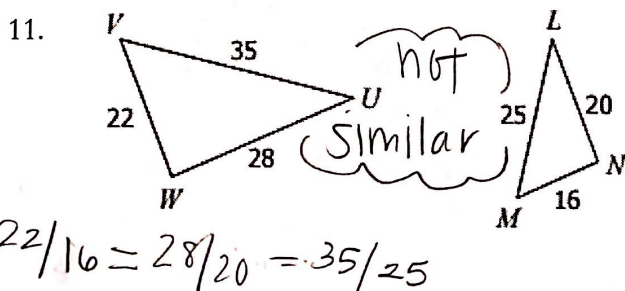 11.
V
35
U
22
28
W
not
similar
L
25
20
N
16
M
22/16 = 28/20 = 35/25